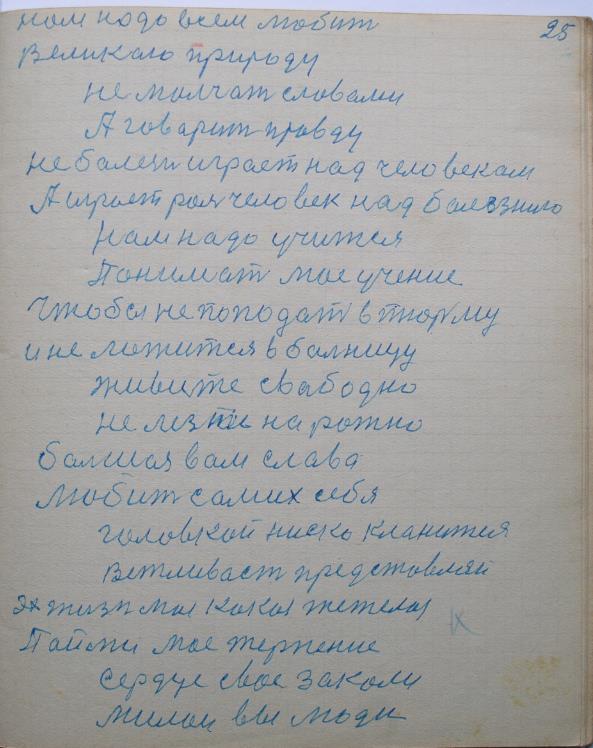 25
нам надо всем любит
великаю природу
не молчат словами
А говарит правду
не балезн играет над человекам
А играет роя человек над балезнию
нам надо учится
Понимат мае учение
Чтобы не поподат в тюрму
и не ложится в балницу
живите свабодно
не лезти на рожно
балшая вам слава
Любит самих себя
головкой ниско кланится
вежливаст представляй
Эх жизн моя какая тежелая
Пайми мае терпение
сердце свае закали
милаи вы люди